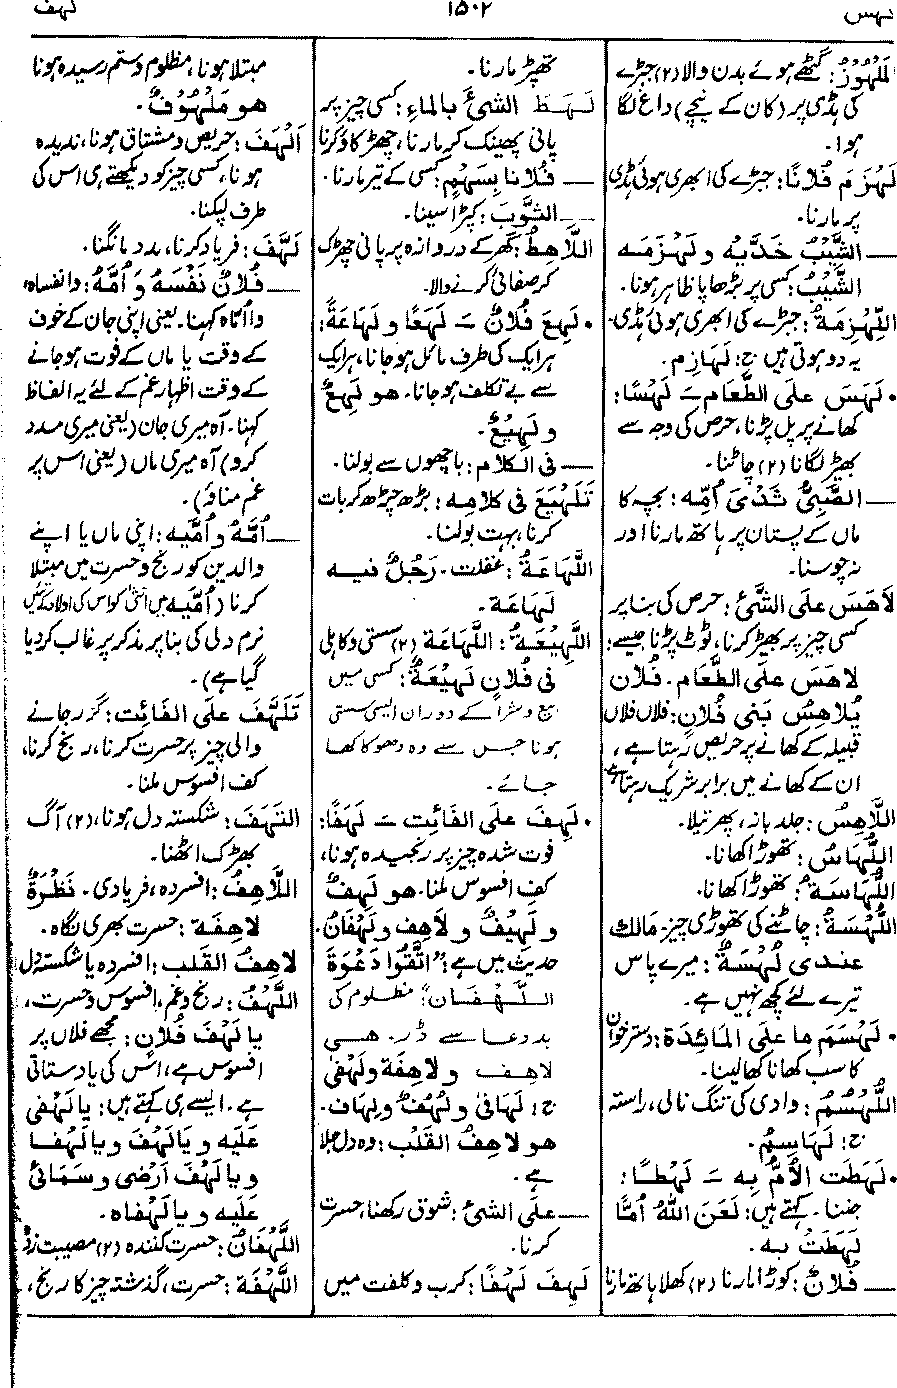 لہس
۱۵۰۲
لہف
المَلْهُوْزُ: گٹھے ہوئے بدن والا (۲) جبڑے
کی ہڈی پر (کان کے نیچے) داغ لگا
ہوا۔
لَهْزَمَ فُلَانًا: جبڑے کی ابھری ہوئی ہڈی
پر مارنا۔
— الشَّيْبُ خَدَّيْهِ و لَهْزَمَه
الشَّيْبُ: کسی پر بڑھاپا ظاہر ہونا۔
اللِّهْزِمَةُ: جبڑے کی ابھری ہوئی ہڈی۔
یہ دو ہوتی ہیں ج: لَهَازِم۔
• لَهَسَ علی الطَّعَام ـَ لَهْسًا:
کھانے پر پل پڑنا، حرص کی وجہ سے
بھیڑ لگانا (۲) چاٹنا۔
— الصَّبِیُّ ثَدْیَ اُمِّه: بچہ کا
ماں کے پستان پر ہاتھ مارنا اور
نہ چوسنا۔
لَاهَسَ علی الشَّیْءِ: حرص کی بنا پر
کسی چیز پر بھیڑ کرنا، ٹوٹ پڑنا جیسے:
لَاهَسَ علی الطَّعَام۔ فُلَان
يُلَاهِسُ بَنِی فُلَانٍ: فلاں فلاں
قبیلہ کے کھانے پر حریص رہتا ہے،
ان کے کھانے میں برابر شریک رہتا ہے
اللَّاهِسُ: جلد باز، پھرتیلا۔
اللُّهَاسُ: تھوڑا کھانا۔
اللُّهَاسَةُ: تھوڑا کھانا۔
اللُّهْسَةُ: چاٹنے کی تھوڑی چیز۔ مَالَكَ
عِنْدِی لُهْسَةٌ: میرے پاس
تیرے لئے کچھ نہیں ہے۔
• لَهْسَمَ ما علی المَائِدَة: دسترخوان
کا سب کھانا کھا لینا۔
اللُّهْسُمُ: وادی کی تنگ نالی، راستہ
ج: لَهَاسِمُ۔
• لَهَطَت الأُمُّ بِه ـَ لَهْطًا:
جننا۔ کہتے ہیں: لَعَنَ اللّٰهُ اُمًّا
لَهَطَتْ بِه۔
— فُلَانٌ: کوڑا مارنا (۲) کھلا ہاتھ مارنا
تھپڑ مارنا۔
لَهَطَ الشیءَ بالماءِ: کسی چیز پر
پانی پھینک کر مارنا، چھڑکاؤ کرنا
— فُلَانًا بِسَهْمٍ: کسی کے تیر مارنا۔
— الثَّوْبَ: کپڑا سینا۔
اللَّاهِطُ: گھر کے دروازہ پر پانی چھڑک
کر صفائی کرنے والا۔
• لَهِعَ فُلَانٌ ـَ لَهَعًا و لَهَاعَةً:
ہر ایک کی طرف مائل ہو جانا، ہر ایک
سے بے تکلف ہو جانا۔ هو لَهِعٌ
و لَهِيْعٌ۔
— فی الکلام: باچھوں سے بولنا۔
تَلَهْيَعَ فی کلامِه: بڑھ چڑھ کر بات
کرنا، بہت بولنا۔
اللَّهَاعَةُ: غفلت۔ رَجُلٌ فیه
لَهَاعَة۔
اللَّهِيْعَةُ: اللَّهَاعَة (۲) سستی و کاہلی
فی فُلَانٍ لَهِيْعَةٌ: کسی میں
بیع و شراء کے دوران ایسی سستی
ہونا جس سے وہ دھوکا کھا
جائے۔
• لَهِفَ علی الفَائِت ـَ لَهَفًا:
فوت شدہ چیز پر رنجیدہ ہونا،
کف افسوس ملنا۔ هو لَهِفٌ
و لَهِيْفٌ و لَاهِف و لَهْفَانُ۔
حدیث میں ہے: "اتَّقُوْا دَعْوَةَ
اللَّهْفَان": مظلوم کی
بددعا سے ڈر۔ هی
لاهف و لَاهِفَة و لَهْفٰی
ج: لَهَافٰی و لُهُفٌ و لِهَاف۔
هو لَاهِفُ القَلْب: وہ دل جلا
ہے۔
— علَی الشیءِ: شوق رکھنا، حسرت
کرنا۔
لُهِفَ لَهْفًا: کرب و کلفت میں
مبتلا ہونا، مظلوم و ستم رسیدہ ہونا
هو مَلْهُوْفٌ۔
اَلْهَفَ: حریص و مشتاق ہونا، ندیدہ
ہونا، کسی چیز کو دیکھتے ہی اس کی
طرف لپکنا۔
لَهَّفَ: فریاد کرنا، مدد مانگنا۔
— فُلَانٌ نَفْسَهُ وَ اُمَّهُ: وا نفساہ،
وا اُمّاہ کہنا۔ یعنی اپنی جان کے خوف
کے وقت یا ماں کے فوت ہو جانے
کے وقت اظہار غم کے لئے یہ الفاظ
کہنا۔ آہ میری جان (یعنی میری مدد
کرو) آہ میری ماں (یعنی اس پر
غم مناؤ)۔
— اُمَّهُ و اُمَّيْه: اپنی ماں یا اپنے
والدین کو رنج و حسرت میں مبتلا
کرنا (اُمَّيْه میں
نرم دلی کی بنا پر مذکر پر غالب کردیا
گیا ہے)۔
تَلَهَّفَ علی الفَائِت: گزر جانے
والی چیز پر حسرت کرنا، رنج کرنا،
کف افسوس ملنا۔
التَهَفَ: شکستہ دل ہونا، (۲) آگ
بھڑک اٹھنا۔
اللَّاهِفُ: افسردہ، فریادی۔ نَظْرَةٌ
لاهِفَة: حسرت بھری نگاہ۔
لاهِفُ القَلْب: افسردہ یا شکستہ دل
اللَّهْفُ: رنج و غم، افسوس و حسرت،
یا لَهْفَ فُلَانٍ: مجھے فلاں پر
افسوس ہے، اس کی یاد ستاتی
ہے۔ ایسے ہی کہتے ہیں: یا لَهْفِی
عَلَيْه و يَا لَهْفَ و يا لَهْفَا
و يا لَهْفَ اَرْضِی و سَمَائِی
عَلَيْه و يا لَهْفَاه۔
اللَّهْفَانُ: حسرت کنندہ (۲) مصیبت زدہ
اللَّهْفَة: حسرت، گذشتہ چیز کا رنج،